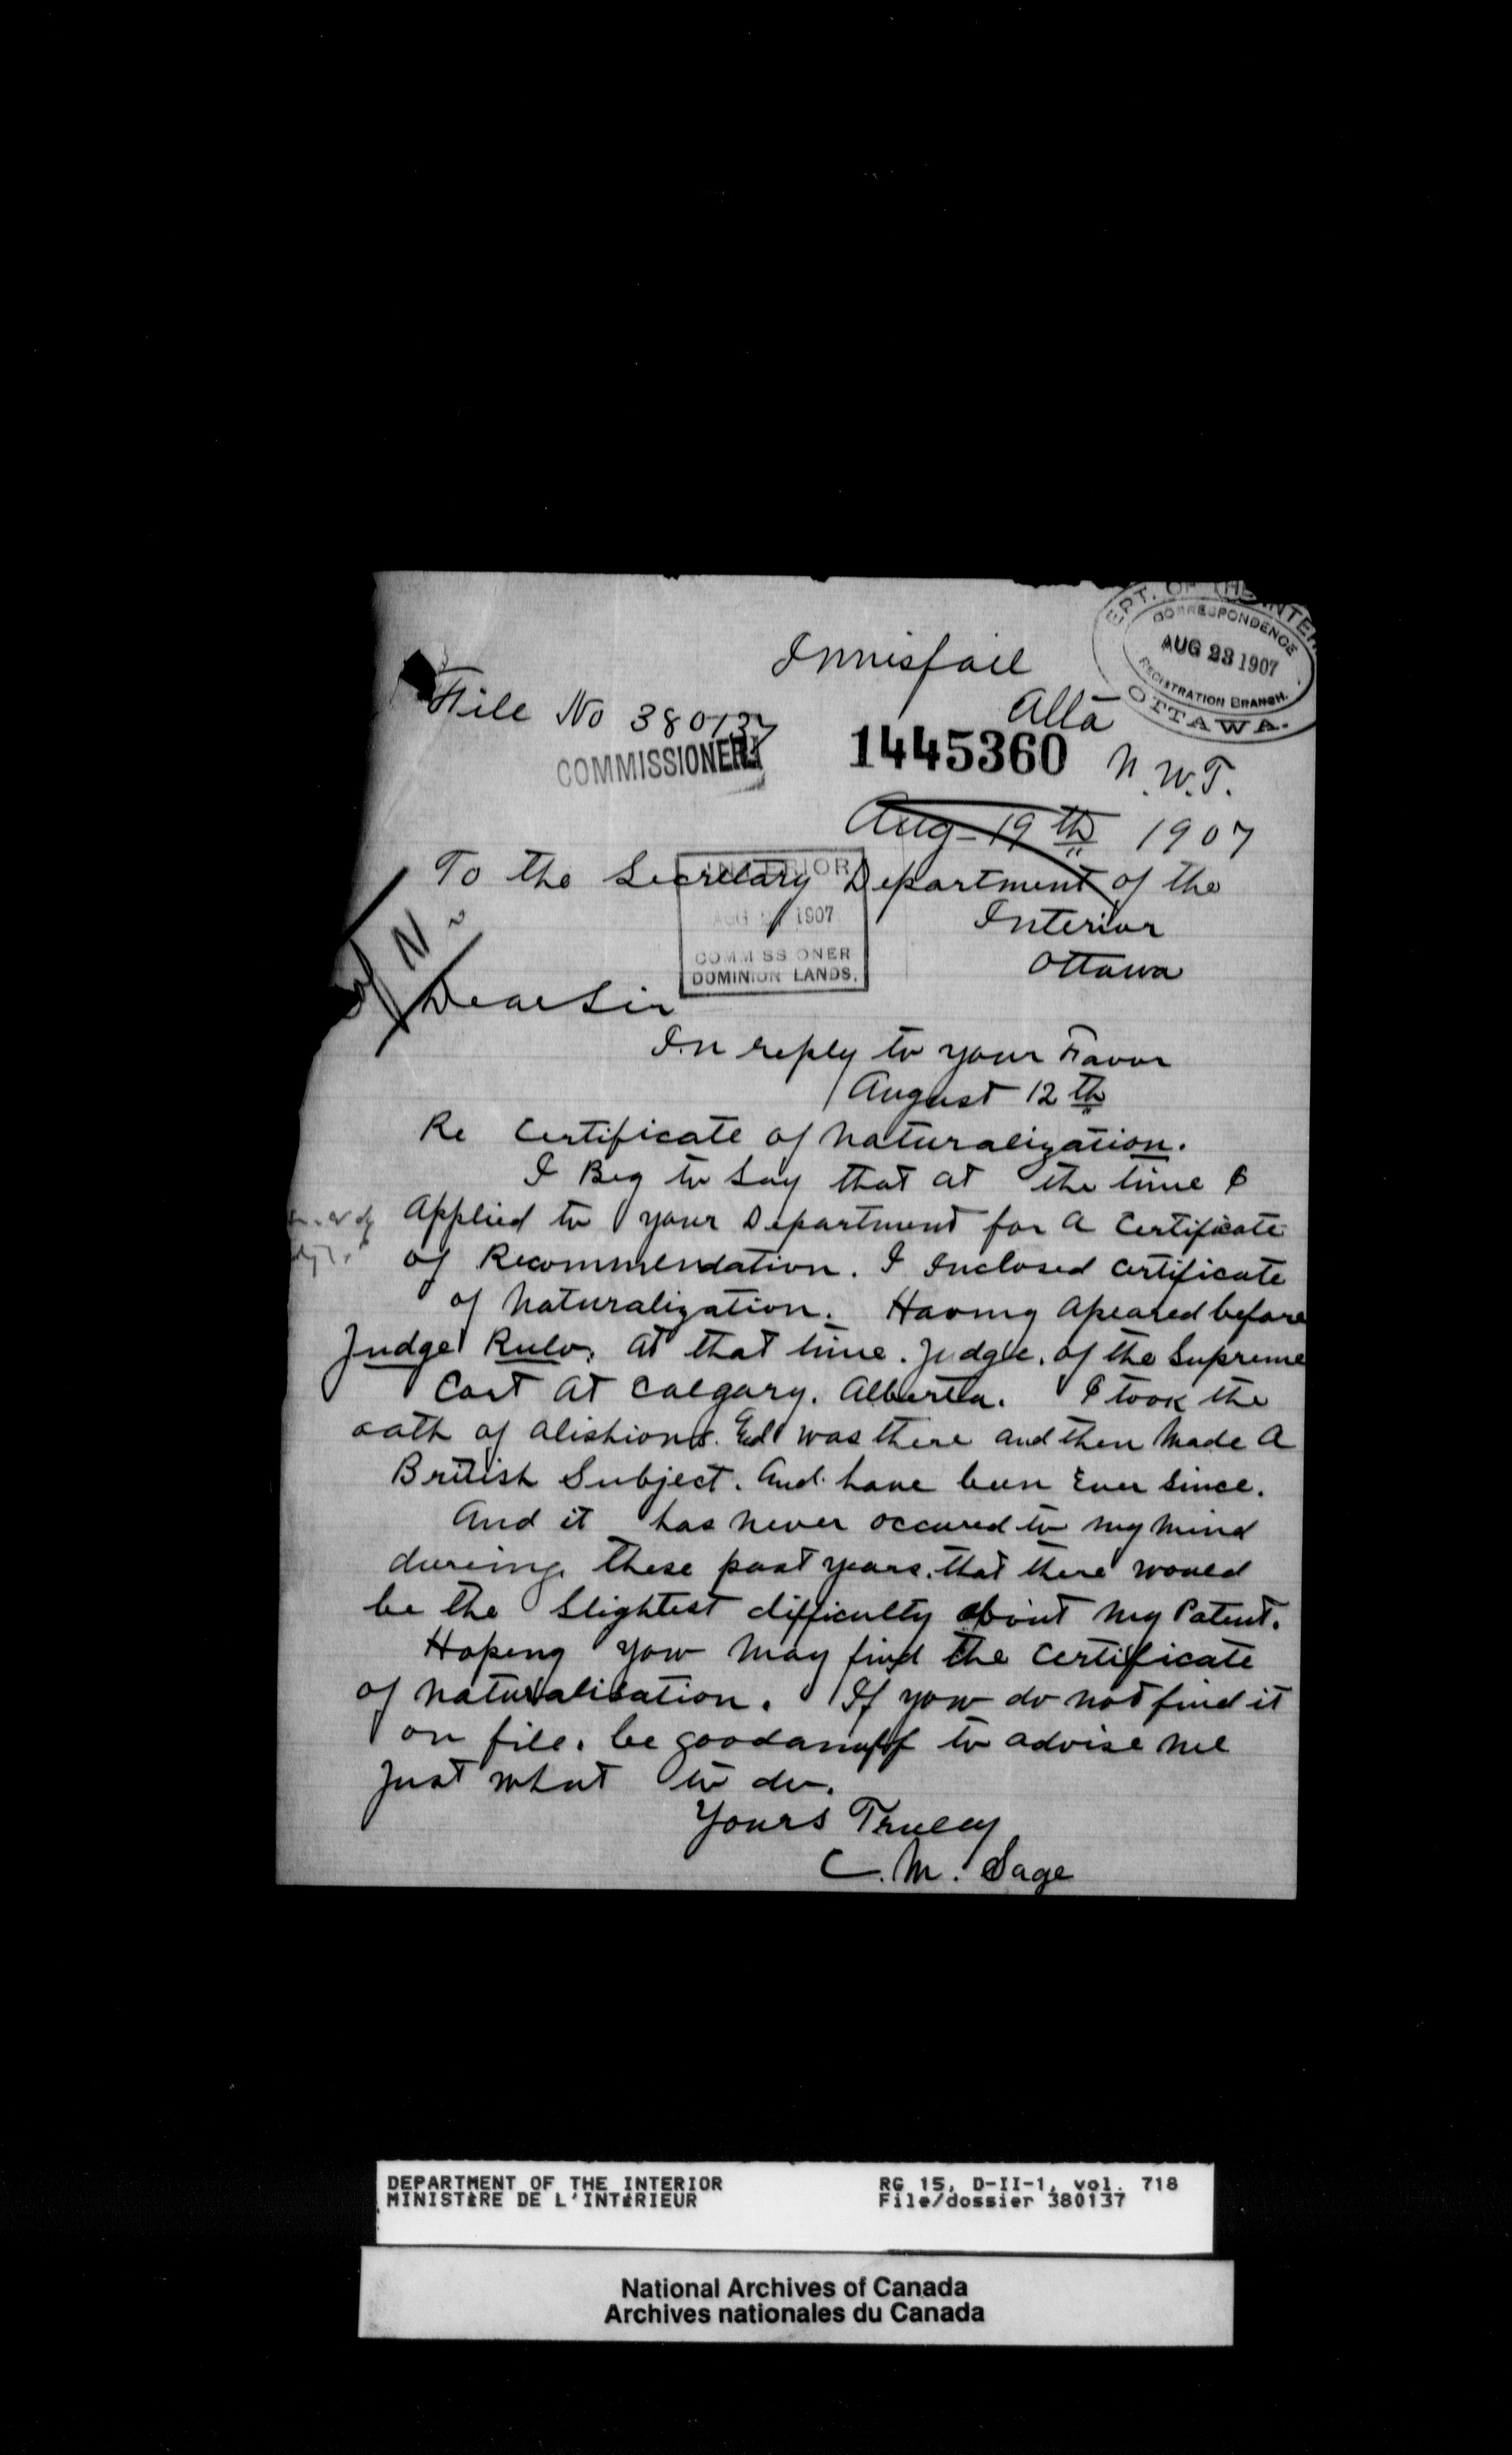 DEPT. OF THE INTER
CORRESPONDENCE
AUG 23 1907
REGISTRATION BRANCH.
OTTAWA.
Innisfail
Alta
File No 380137
COMMISSIONER
1445360
N.W.T.
Aug-19th 1907
To the Secretary Department of the
INTERIOR
AUG 1907
COMMISSIONER
DOMINION LANDS.
Interior
Ottawa
Dear Sir
In reply to your Favor
August 12th
Re Certificate of Naturalization.
I Beg to Say that at the time I
Applied to your Department for A Certificate
of Recommendation. I Inclosed Certificate
of Naturalization. Having Apeared before
Judge Rulo, at that time. Judge. of the Supreme
Cort At Calgary. Alberta. I took the
oath of alishions. was there and then Made A
British Subject. And have been Ever Since.
And it has never occured to my mind
dureing these past years. that there would
be the Slightest difficulty about my Patent.
Hopeing you may find the Certificate
of Naturalisation. If you do not find it
on file. be goodanuff to advise me
Just what to do.
Yours Truley
C. M. Sage
DEPARTMENT OF THE INTERIOR
MINISTÈRE DE L'INTÉRIEUR
RG 15, D-II-1, vol. 718
File/dossier 380137
National Archives of Canada
Archives nationales du Canada